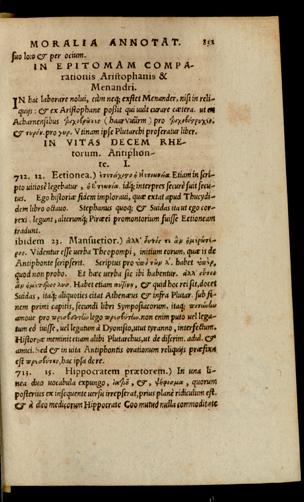 MORALIA ANNOTAT. 851
suo loco & per ocium.
IN EPITOMAM COMPA
rationis Aristophanis &
Menandri.
IN hac laborare nolui, cùm neq; exstet Menander, nisi in reli-
quijs: & ex Aristophane possit qui uult curare cætera. ut ex
Acharnensibus pro
& pro Vtinam ipse Plutarchi proferatur liber.
IN VITAS DECEM RHE
torum. Antiphon-
te. I.
712. 12. Eetionea.) Etiam in scri-
pto uitiosè legebatur, idq; interpres securè suit secu-
tus. Ego historiæ fidem imploraui, quæ extat apud Thucydi-
dem libro octauo. Stephanus quoq; & Suidas ita ut ego cor-
rexi legunt, alterumq; Piræei promontorium fuisse Eetioneam
tradunt.
ibidem 23. Mansuetior.)
Videntur esse uerba Theopompi, initium eorum, quæ is de
Antiphonte scripserit. Scriptus pro habet
quod non probo. Et hæc uersa sic ibi habentur.
Habet etiam & quod hoc rei sit, docet
Suidas, itaq; aliquoties citat Athenæus & infra Plutar. sub fi-
nem primi capitis, secundi libri Symposiacorum, itaq;
amoue pro lego non enim puto uel lega-
tum eò isse, uel legatum à Dyonisio, utut tyranno, interfectum.
Historiæ meminit etiam alibi Plutarchus, ut de discrim. adul. &
amici. Sed & in uita Antiphontis orationum reliquijs præfixa
est hac ipsa de re.
713. 15. Hippocratem prætorem.) In una li-
nea duo uocabula expungo, &, quorum
posterius ex insequente uersu irrepserat, prius planè ridiculum est.
& à deo medicorum Hippocrate Coo mutuo nulla commoditate